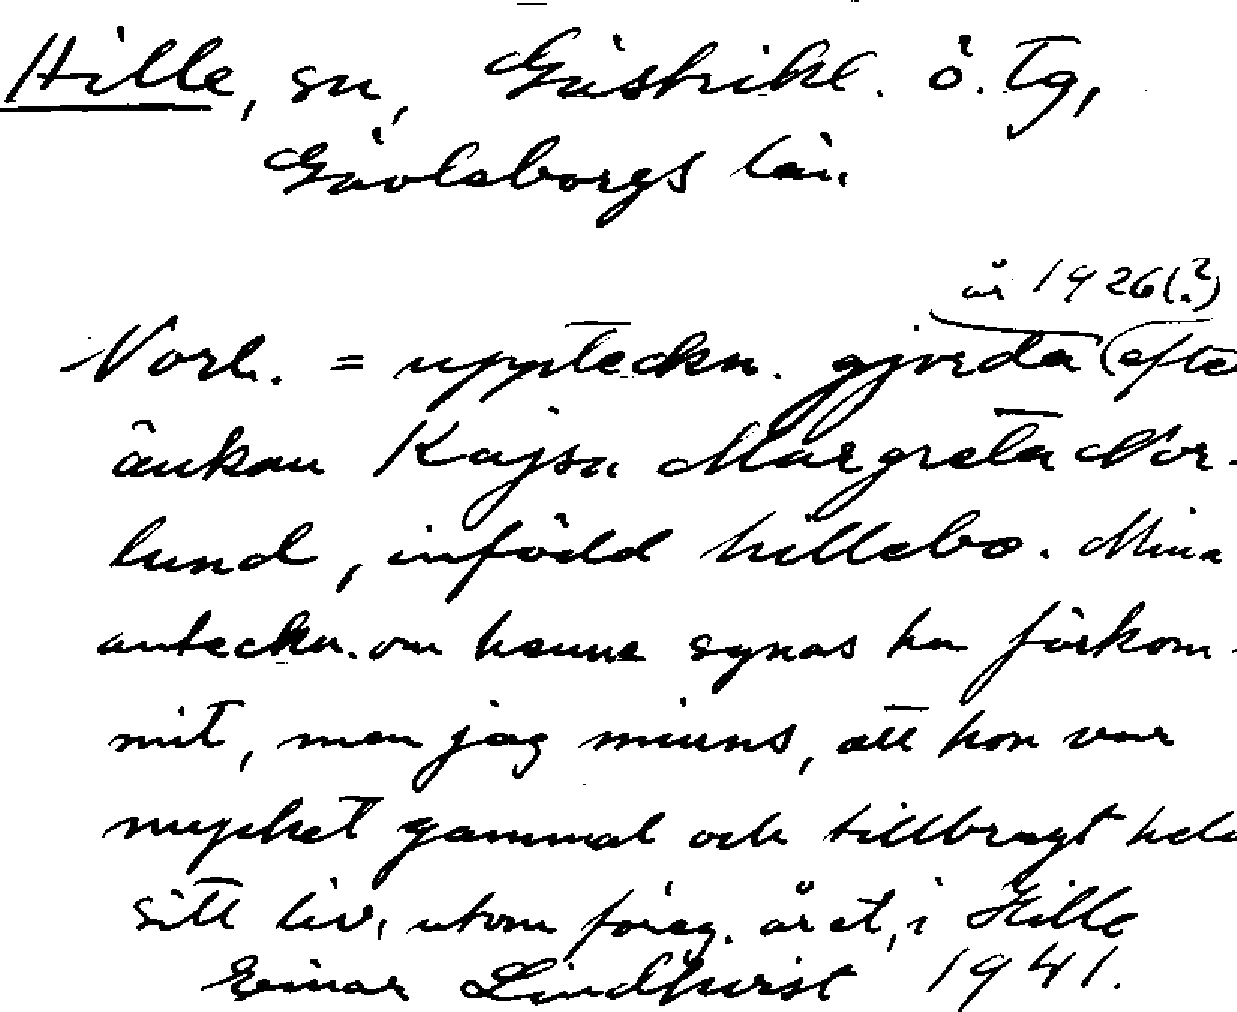 Hille, sn, Gästrikl. ö. tg,
Gävleborgs län.
år 1926(?)
Norl. = uppteckn. gjorda (efte
änkan Kajsa Margreta Nor-
lund, infödd hillebo. Mina
anteckn. om henne synas ha förkom-
mit, men jag minns, att hon var
mycket gammal och tillbragt hela
sitt liv, utom föreg. året, i Hille
Einar Lindhurst 1941.